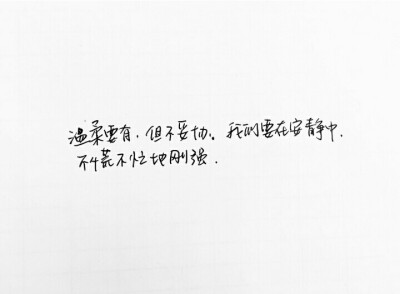 温柔要有，但不妥协。我们要在安静中，
不慌不忙地刚强．